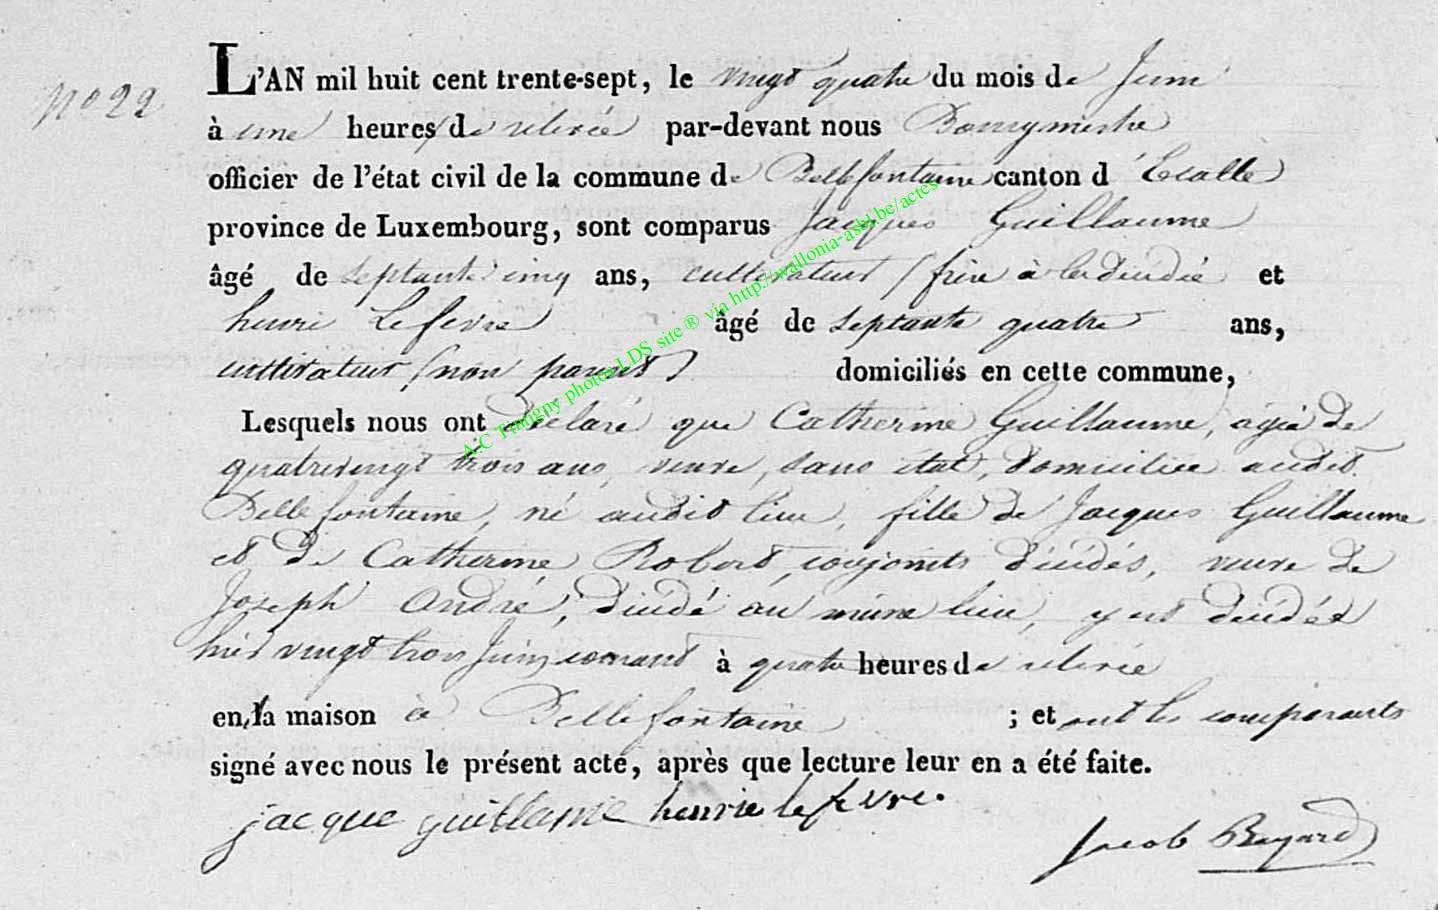 N° 22
L'AN mil huit cent trente-sept, le vingt quatre du mois de Juin
à une heures de relevée par-devant nous Bourgmestre
officier de l'état civil de la commune de Bellefontaine canton d'Etalle
province de Luxembourg, sont comparus Jacques Guillaume
âgé de septante cinq ans, cultivateur (frère à la décédée et
henri Lefevre âgé de septante quatre ans,
cultivateur (non parent) domiciliés en cette commune,
Lesquels nous ont déclaré que Catherine Guillaume, agée de
quatrevingt trois ans, veuve, sans état, domiciliée audit
Bellefontaine, né audit lieu, fille de Jacques Guillaume
et de Catherine Robert, conjoints décédés, veuve de
Joseph André, décédé au même lieu, y est décédée
hier vingt trois Juin courant à quatre heures de relevée
en la maison à Bellefontaine ; et ont les comparants
signé avec nous le présent acte, après que lecture leur en a été faite.
jacque guillaume henrie lefevre.
Jacob Bayard
A.C Tintigny photos LDS site ® via http://wallonia-asbl.be/actes